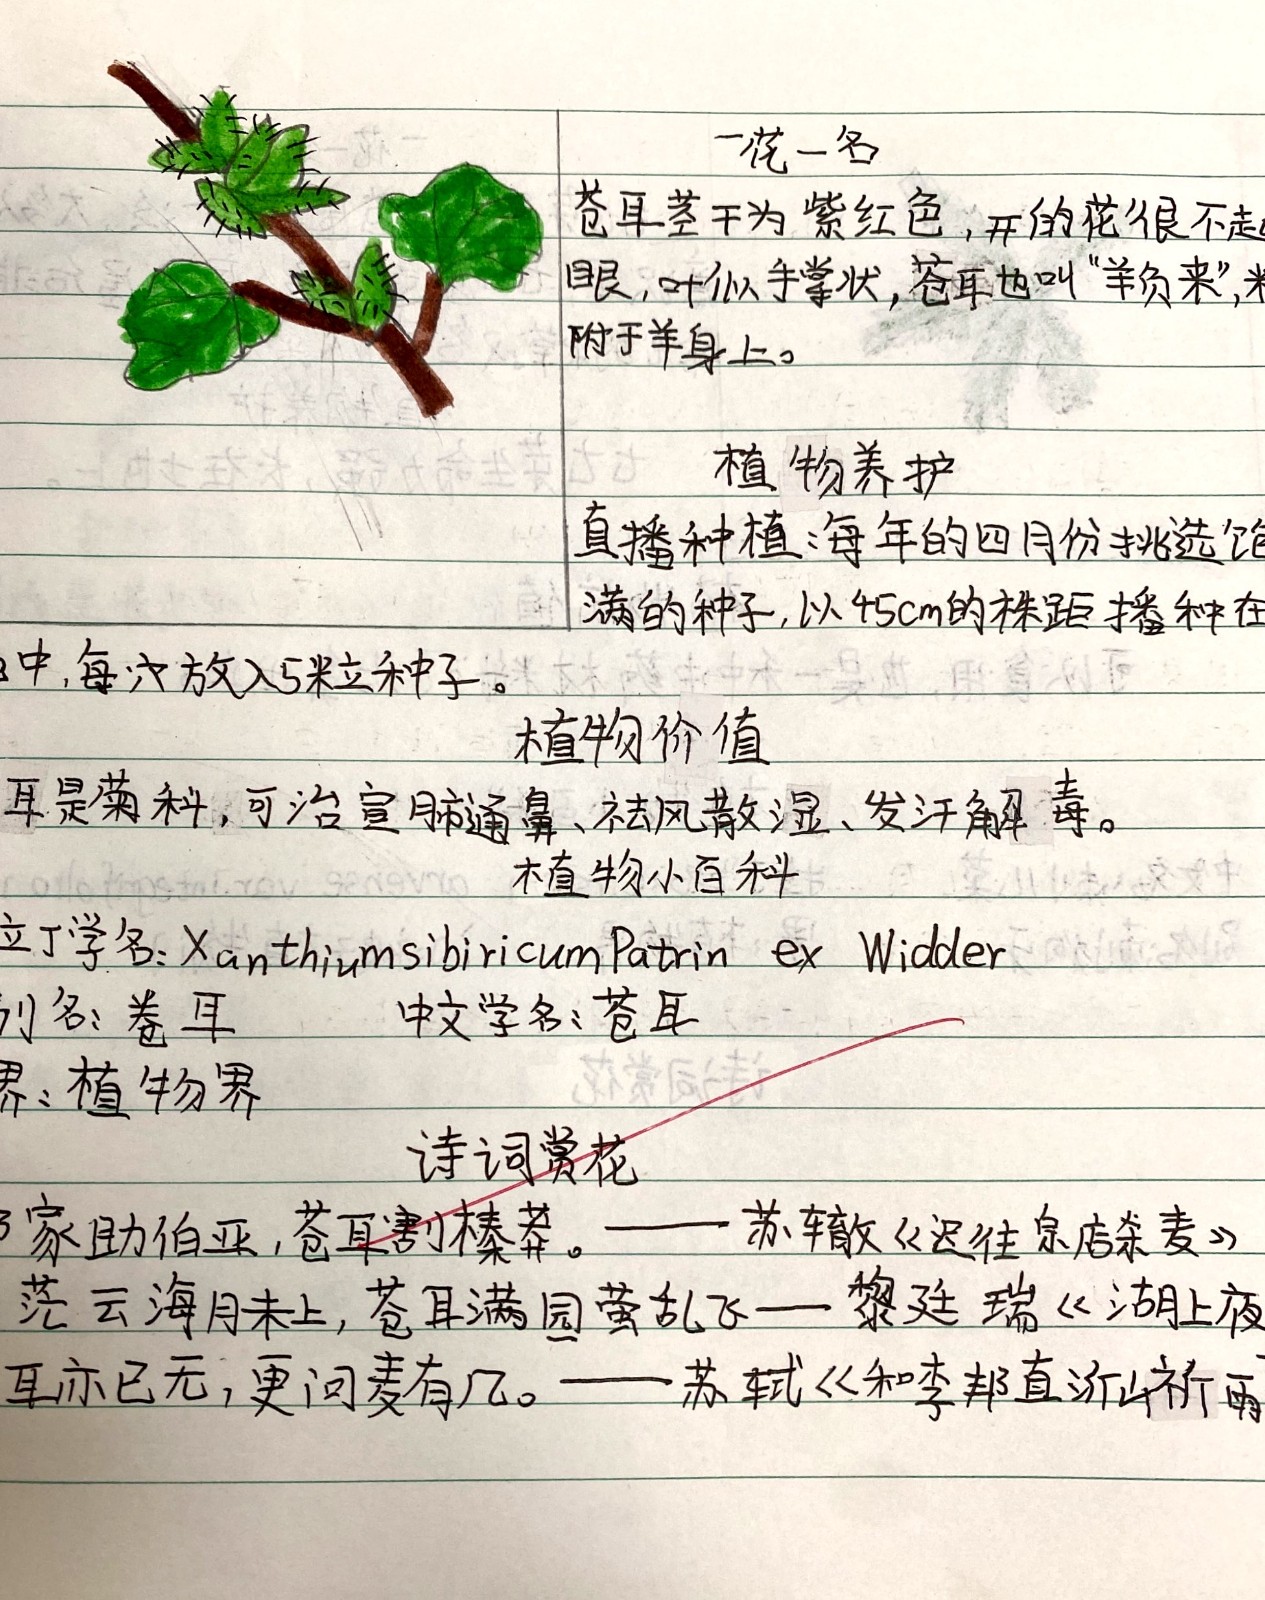 一花一名
苍耳茎干为紫红色,开的花很不起
眼,叶似手掌状,苍耳也叫“羊负来”,
附于羊身上。
植物养护
直播种植:每年的四月份挑选饱
满的种子,以45cm的株距播种在
中,每穴放入5粒种子。
植物价值
耳是菊科,可治宣肺通鼻、祛风散湿、发汗解毒。
植物小百科
拉丁学名:XanthiumsibiricumPatrin ex Widder
别名:卷耳 中文学名:苍耳
界:植物界
诗词赏花
家助伯亚,苍耳割榛莽。——苏辙《迟往泉店杀麦》
茫云海月未上,苍耳满园萤乱飞——黎廷瑞《湖上夜
耳亦已无,更问麦有几。——苏轼《和李邦直沂山祈雨